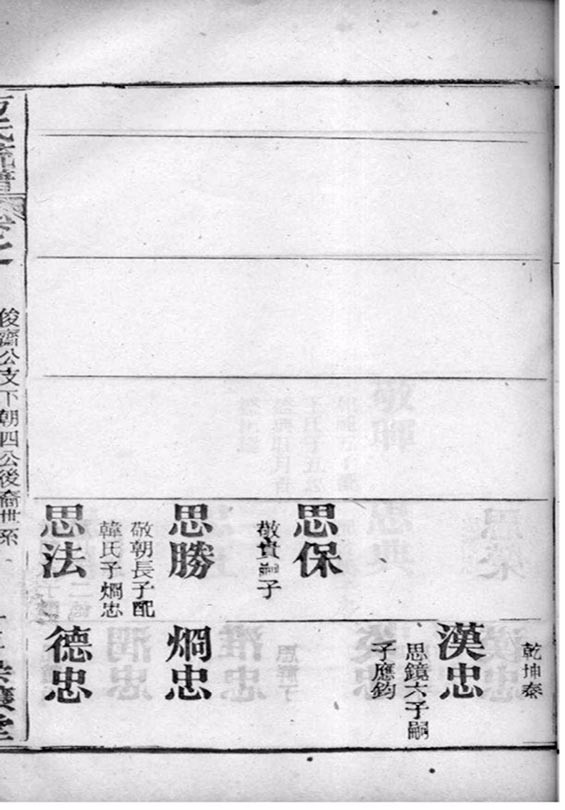 思保
敬貴嗣子
思勝
敬朝長子配
韓氏子烱忠
思法
乾坤泰
漢忠
思鏡六子嗣
子應鈞
烱忠
德忠
氏流譜 卷之一
公支下朝四公後裔世系
堂